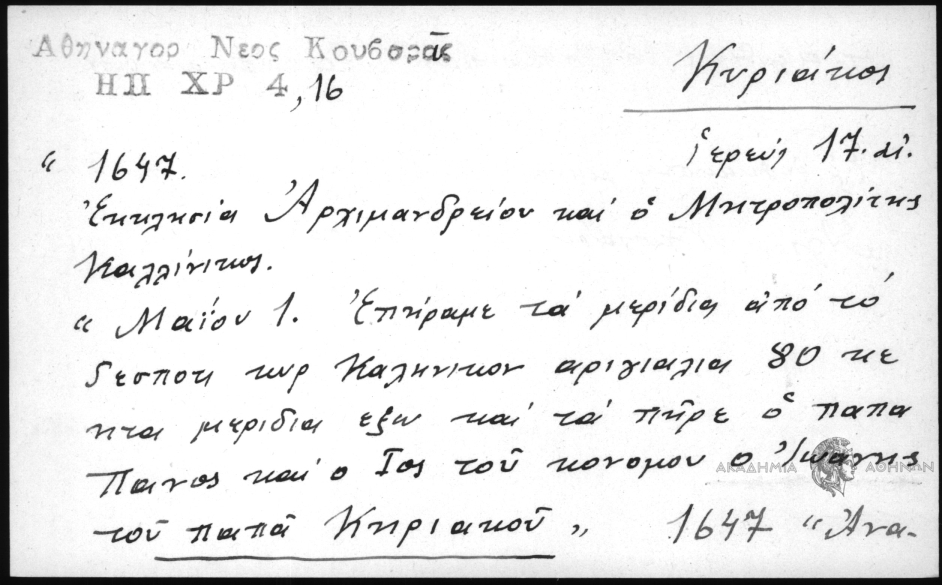 Αθηναγορ Νεος Κουβαρᾶς
ΗΠ ΧΡ 4,16
Κυριάκος
ἱερεύς 17. αἰ.
“ 1647.
Ἐκκλησία Ἀρχιμανδρείου καί ὁ Μητροπολίτης
Καλλίνικος.
“ Μαΐου 1. Ἐπήραμε τά μερίδια ἀπό τό
δεσποτι κυρ Καληνικον αριγιαλια 80 κε
ητα μεριδια εξω καί τά πῆρε ὁ παπα
Πανος και ο Ιος τοῦ κονομου ο Ἰωάνης
τοῦ παπᾶ Κηριακοῦ „ 1647 “ Ἀνα-
ΑΚΑΔΗΜΙΑ ΑΘΗΝΩΝ